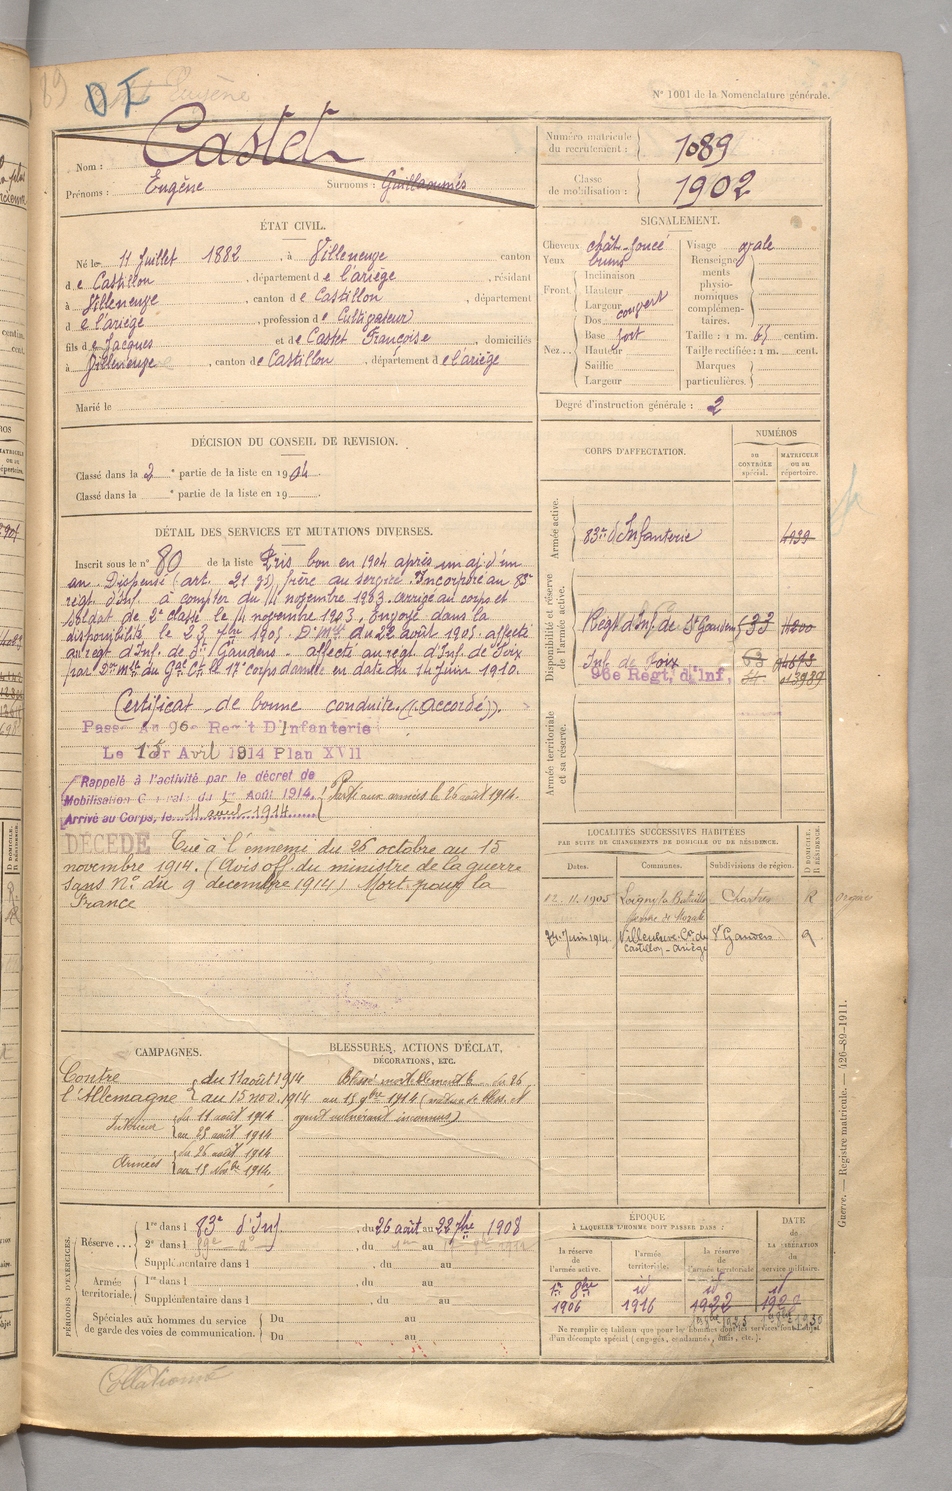 N° 1001 de la Nomenclature générale.
89
Eugène
Nom : Castet
Prénoms : Eugène Surnoms : Guillaoumès
Numéro matricule du recrutement : 1089
Classe de mobilisation : 1902
ÉTAT CIVIL.
Né le 11 Juillet 1882, à Villeneuve canton
de Castillon, département de l'ariège, résidant
à Villeneuve, canton de Castillon, département
de l'ariège, profession de Cultivateur
fils de Jacques et de Castet Françoise, domiciliés
à Villeneuve, canton de Castillon, département de l'ariège
Marié le
SIGNALEMENT.
Cheveux chât-foncé
Yeux bruns
Front Inclinaison
Hauteur
Largeur couvert
Nez Dos
Base fort
Hauteur
Saillie
Largeur
Visage ovale
Renseignements physionomiques complémentaires.
Taille : 1 m. 65 centim.
Taille rectifiée : 1 m. cent.
Marques particulières.
Degré d'instruction générale : 2
DÉCISION DU CONSEIL DE REVISION.
Classé dans la 2 e partie de la liste en 1904
Classé dans la e partie de la liste en 19
DÉTAIL DES SERVICES ET MUTATIONS DIVERSES.
Inscrit sous le n° 80 de la liste Pris bon en 1904 après un aj. d'un
an. Dispensé (art. 21 §5), frère au service. Incorporé au 83e
régt d'Inf. à compter du 14 novembre 1903. arrivé au corps et
soldat de 2e classe le 14 novembre 1903, Envoyé dans la
disponibilité le 23 7bre 1905. D. mlle du 22 août 1905. affecté
au régt d'Inf. de St Gaudens. affecté au régt d'Inf. de Foix
par Don mlle du Gal Ct le 17e corps d'armée en date du 14 Juin 1910.
Certificat de bonne conduite. ((accordé)).
Passé Au 96e Regi't D'Infanterie
Le 1er Avril 1914 Plan XVII
Rappelé à l'activité par le décret de
Mobilisation Générale du 1er Août 1914.
Arrivé au Corps, le 11 août 1914
Parti aux armées le 26 août 1914.
DÉCÉDÉ Tué à l'ennemi du 26 octobre au 15
novembre 1914. (Avis off. du ministre de la guerre
sans n° du 9 décembre 1914) Mort pour la
France
CORPS D'AFFECTATION.
NUMÉROS
au CONTRÔLE spécial.
MATRICULE ou au répertoire.
Armée active.
83e d'Infanterie 4939
Disponibilité et réserve de l'armée active.
Régt d'Inf. de St Gaudens 533 4200
Inf. de Foix 63
96e Régt, d'Inf, 013989
Armée territoriale et sa réserve.
LOCALITÉS SUCCESSIVES HABITÉES
PAR SUITE DE CHANGEMENTS DE DOMICILE OU DE RÉSIDENCE.
Dates. Communes. Subdivisions de région. D DOMICILE. R RÉSIDENCE.
02.11.1905 Loigny la Bataille Chartres R
24 Juin 1914 Villeneuve. Con de Castillon-Ariège St Gaudens
CAMPAGNES.
Contre l'Allemagne du 11 août 1914
au 15 nov. 1914
Intérieur du 11 août 1914
au 25 août 1914
Armées du 26 août 1914
au 15 Novbre 1914.
BLESSURES, ACTIONS D'ÉCLAT,
DÉCORATIONS, ETC.
Blessé mortellement le du 26
au 15 9bre 1914 (nature de bless. et
agent vulnérant inconnus)
PÉRIODES D'EXERCICES.
Réserve... 1re dans l 83e d'Inf. , du 26 août au 22 7bre 1908
2e dans l , du au
Supplémentaire dans l , du au
Armée territoriale. 1re dans l , du au
Supplémentaire dans l , du au
Spéciales aux hommes du service
de garde des voies de communication.
Du au
Du au
ÉPOQUE
À LAQUELLE L'HOMME DOIT PASSER DANS :
la réserve de l'armée active.
l'armée territoriale.
la réserve de l'armée territoriale
DATE de LA LIBÉRATION du service militaire.
1er 8bre 1906
id 1916
id 1922
id
Ne remplir ce tableau que pour les hommes dont les services font l'objet
d'un décompte spécial (engagés, condamnés, omis, etc.).
Guerre. — Registre matricule. — 426-89-1911.
Collationné